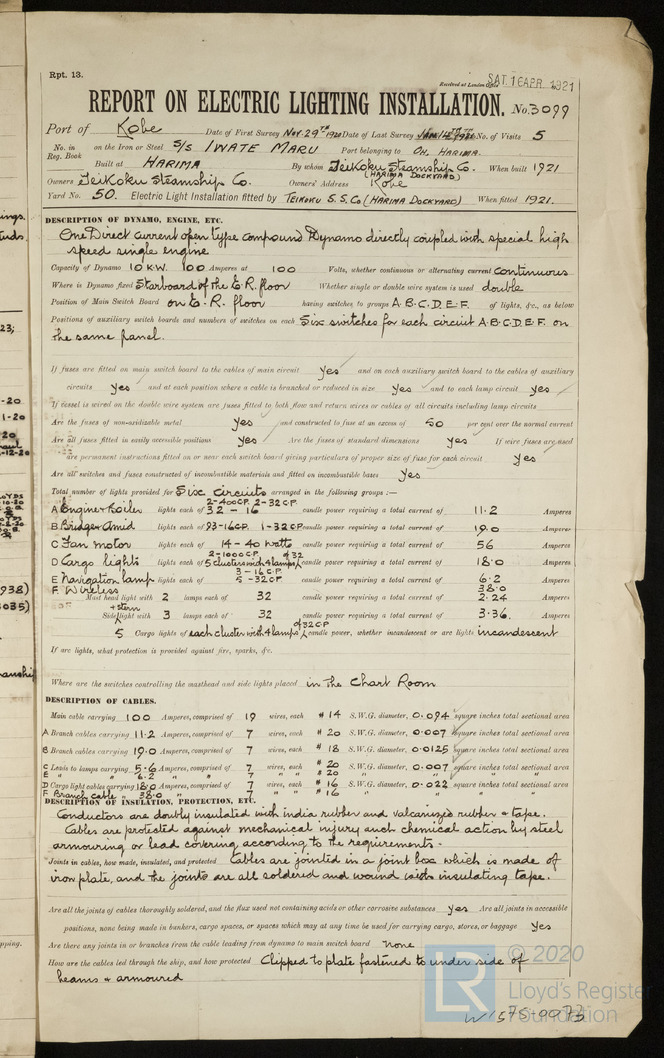 Rpt. 13.
Received at London Office SAT. 16 APR. 1921
REPORT ON ELECTRIC LIGHTING INSTALLATION. No. 3099
Port of Kobe Date of First Survey Nov. 29TH 1920 Date of Last Survey No. of Visits 5
No. in Reg. Book on the Iron or Steel S/S IWATE MARU Port belonging to OH, HARIMA.
Built at HARIMA By whom Teikoku Steamship Co. (HARIMA DOCKYARD) When built 1921
Owners Teikoku Steamship Co. Owners' Address Kobe
Yard No. 50. Electric Light Installation fitted by TEIKOKU S.S. Co (HARIMA DOCKYARD) When fitted 1921.
DESCRIPTION OF DYNAMO, ENGINE, ETC.
One Direct current open type compound Dynamo directly coupled with special high
speed single engine
Capacity of Dynamo 10 K.W. 100 Amperes at 100 Volts, whether continuous or alternating current continuous
Where is Dynamo fixed Starboard of the E.R. floor Whether single or double wire system is used double
Position of Main Switch Board on E.R. floor having switches to groups A.B.C.D.E.F. of lights, &c., as below
Positions of auxiliary switch boards and numbers of switches on each Six switches for each circuit A.B.C.D.E.F. on
the same panel.
If fuses are fitted on main switch board to the cables of main circuit yes and on each auxiliary switch board to the cables of auxiliary
circuits yes and at each position where a cable is branched or reduced in size yes and to each lamp circuit yes
If vessel is wired on the double wire system are fuses fitted to both flow and return wires or cables of all circuits including lamp circuits
Are the fuses of non-oxidizable metal yes and constructed to fuse at an excess of 50 per cent over the normal current
Are all fuses fitted in easily accessible positions yes Are the fuses of standard dimensions yes If wire fuses are used
are permanent instructions fitted on or near each switch board giving particulars of proper size of fuse for each circuit yes
Are all switches and fuses constructed of incombustible materials and fitted on incombustible bases yes
Total number of lights provided for Six circuits arranged in the following groups :—
2-400 C.P. 2-32 C.P.
A Engine & boiler lights each of 32 - 16 candle power requiring a total current of 11.2 Amperes
B Bridge & amid lights each of 93-16 C.P. 1-32 C.P. candle power requiring a total current of 19.0 Amperes
C Fan motor lights each of 14 - 40 watts candle power requiring a total current of 56 Amperes
2-1000 C.P.
D Cargo lights lights each of 5 clusters with 4 lamps of 32 candle power requiring a total current of 18.0 Amperes
3 - 16 C.P.
E Navigation lamp lights each of 5 - 32 C.P. candle power requiring a total current of 6.2 Amperes
F Wireless 38.0
Mast head light with 2 lamps each of 32 candle power requiring a total current of 2.24 Amperes
Side + stern light with 3 lamps each of 32 candle power requiring a total current of 3.36. Amperes
5 Cargo lights of each cluster with 4 lamps of 32 C.P candle power, whether incandescent or arc lights incandescent
If arc lights, what protection is provided against fire, sparks, &c.
Where are the switches controlling the masthead and side lights placed in the Chart Room
DESCRIPTION OF CABLES.
Main cable carrying 100 Amperes, comprised of 19 wires, each #14 S.W.G. diameter, 0.094 square inches total sectional area
A Branch cables carrying 11.2 Amperes, comprised of 7 wires, each #20 S.W.G. diameter, 0.007 square inches total sectional area
B Branch cables carrying 19.0 Amperes, comprised of 7 wires, each #18 S.W.G. diameter, 0.0125 square inches total sectional area
C Leads to lamps carrying 5.6 Amperes, comprised of 7 wires, each #20 S.W.G. diameter, 0.007 square inches total sectional area
E " " 6.2 " " 7 " " #20 " " " "
D Cargo light cables carrying 18.0 Amperes, comprised of 7 wires, each #16 S.W.G. diameter, 0.022 square inches total sectional area
F Branch cable " 38.0 " " 7 " " #16 " " " "
DESCRIPTION OF INSULATION, PROTECTION, ETC.
Conductors are doubly insulated with india rubber and valcanized rubber & tape.
Cables are protected against mechanical injury and chemical action by steel
armouring or lead covering according to the requirements.
Joints in cables, how made, insulated, and protected Cables are jointed in a joint box which is made of
iron plate, and the joints are all soldered and wound with insulating tape.
Are all the joints of cables thoroughly soldered, and the flux used not containing acids or other corrosive substances yes Are all joints in accessible
positions, none being made in bunkers, cargo spaces, or spaces which may at any time be used for carrying cargo, stores, or baggage yes
Are there any joints in or branches from the cable leading from dynamo to main switch board none
How are the cables led through the ship, and how protected Clipped to plate fastened to under side of
beams & armoured
© 2020
LR
Lloyd's Register
Foundation
W1575-0073